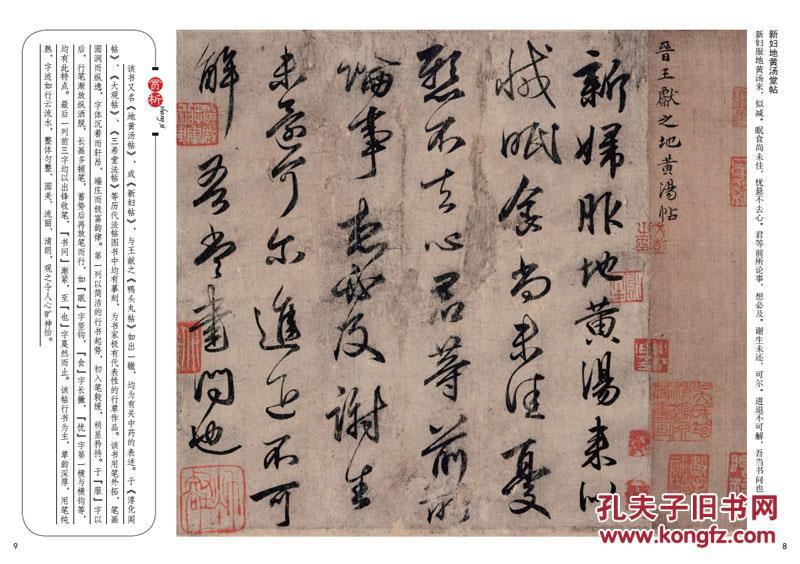 新妇地黄汤堂帖
新妇服地黄汤来，似减。眠食尚未佳，忧悬不去心。君等前所论事，想必及。谢生未还，可尔。进退不可解，吾当书问也。
晉王獻之地黄湯帖
新婦服地黄湯来以
減眠食尚未佳憂
懸不去心君等前所
論事想必及謝生
未還可尔進退不可
解吾當書問也
赏析
shang xi
该书又名《地黄汤帖》，或《新妇帖》，与王献之《鸭头丸帖》如出一辙，均为有关中药的表述。于《淳化阁
帖》、《大观帖》、《三希堂法帖》等历代法帖图书中均有摹刻，为书家极有代表性的行草作品。该书用笔外拓，笔画
圆润而纵逸，字体沉着而轩昂，端庄而极富韵律。第一列以简洁的行书起势，初入笔较缓，稍显矜持。于『服』字以
后，行笔渐放纵洒脱，长画多顿笔，蓄势后再放笔而行，如『眠』字竖钩，『食』字长撇，『忧』字第一横与横钩等，
均有此特点。最后一列前三字均以出锋收笔，『书问』渐紧，至『也』字戛然而止。该帖行书为主，草韵深厚，用笔纯
熟，字迹如行云流水，整体匀整、圆美、流丽、清朗，观之令人心旷神怡。
9
8
孔夫子旧书网
www.kongfz.com